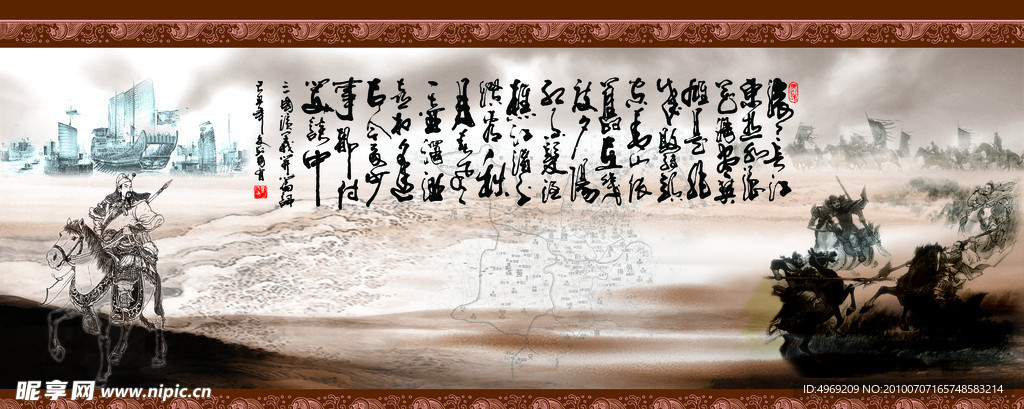 滚滚长江
东逝水浪
花淘尽英
雄是非
成败转头
空青山依
旧在几
度夕阳
红白发渔
樵江渚上
惯看秋
月春风
一壶浊酒
喜相逢
古今多少
事都付
笑谈中
三国演义开篇词
昵享网 www.nipic.cn
ID:4969209 NO:20100707165748583214